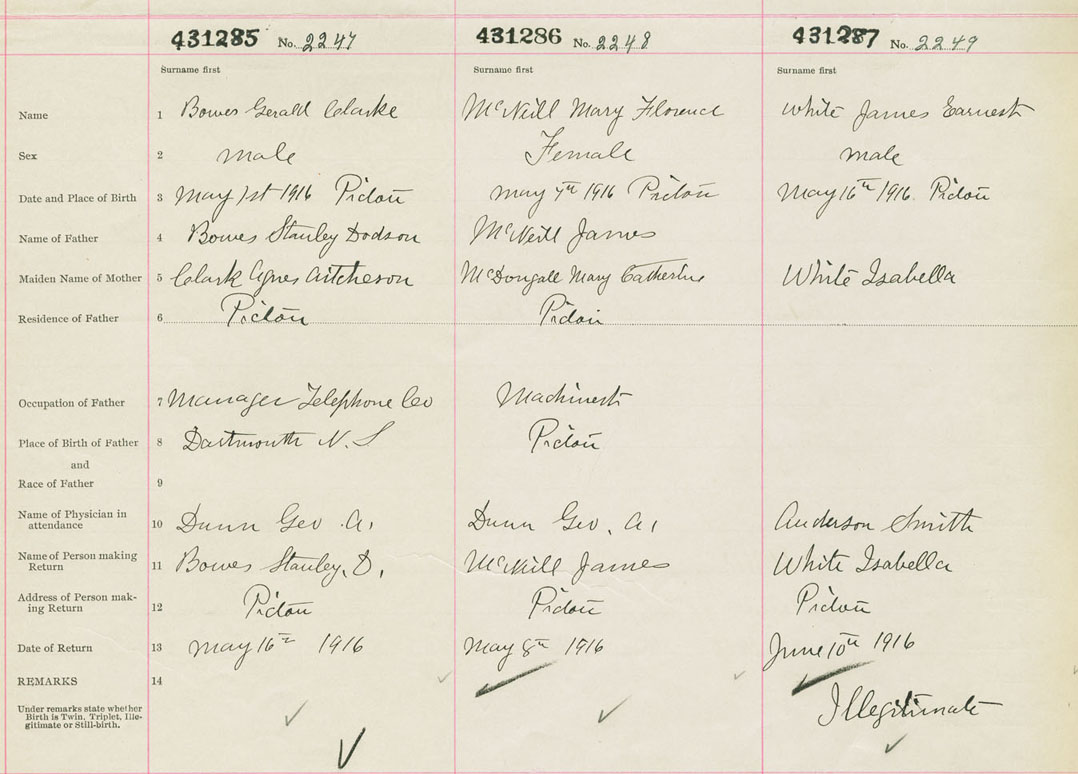 431285 No. 2247 431286 No. 2248 431287 No. 2249
Surname first Surname first Surname first
Name 1 Bowes Gerald Clarke McNeill Mary Florence White James Earnest
Sex 2 Male Female male
Date and Place of Birth 3 May 1st 1916 Picton May 7th 1916 Picton May 16th 1916. Picton
Name of Father 4 Bowes Stanley Dodson McNeill James
Maiden Name of Mother 5 Clark Agnes Aitcheson McDongall Mary Catherine White Isabella
Residence of Father 6 Picton Picton
Occupation of Father 7 Manager Telephone Co Machinest
Place of Birth of Father 8 Dartmouth N. S Picton
and
Race of Father 9
Name of Physician in
attendance 10 Dunn Geo. A. Dunn Geo. A. Anderson Smith
Name of Person making
Return 11 Bowes Stanley. D. McNeill James White Isabella
Address of Person mak-
ing Return 12 Picton Picton Picton
Date of Return 13 May 16th 1916 May 8th 1916 June 10th 1916
REMARKS 14
Under remarks state whether
Birth is Twin, Triplet, Ille-
gitimate or Still-birth.
Illegitimate